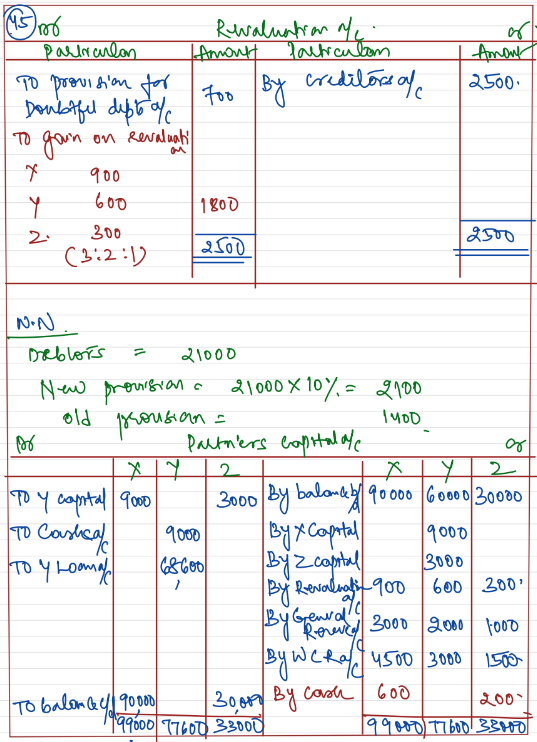 45 Dr Revaluation a/c. Cr
Particulars Amount Particulars Amount
To provision for Doubtful debts a/c 700 By creditors a/c 2500.
To gain on Revaluation
X 900
Y 600 1800
Z. 300
(3:2:1) 2500 2500
W.N.
Debtors = 21000
New provision = 21000 X 10% = 2100
old provision = 1400
Dr Partners capital a/c Cr
X Y Z X Y Z
To Y capital 9000 3000 By balance b/d 90000 60000 30000
To Cash a/c 9000 By X Capital 9000
To Y Loan a/c 68600 By Z capital 3000
By Revaluation a/c 900 600 300
By General Reserve 3000 2000 1000
By WCR a/c 4500 3000 1500
To balance c/d 90,000 30,000 By cash 600 200
99000 77600 33000 99000 77600 33000